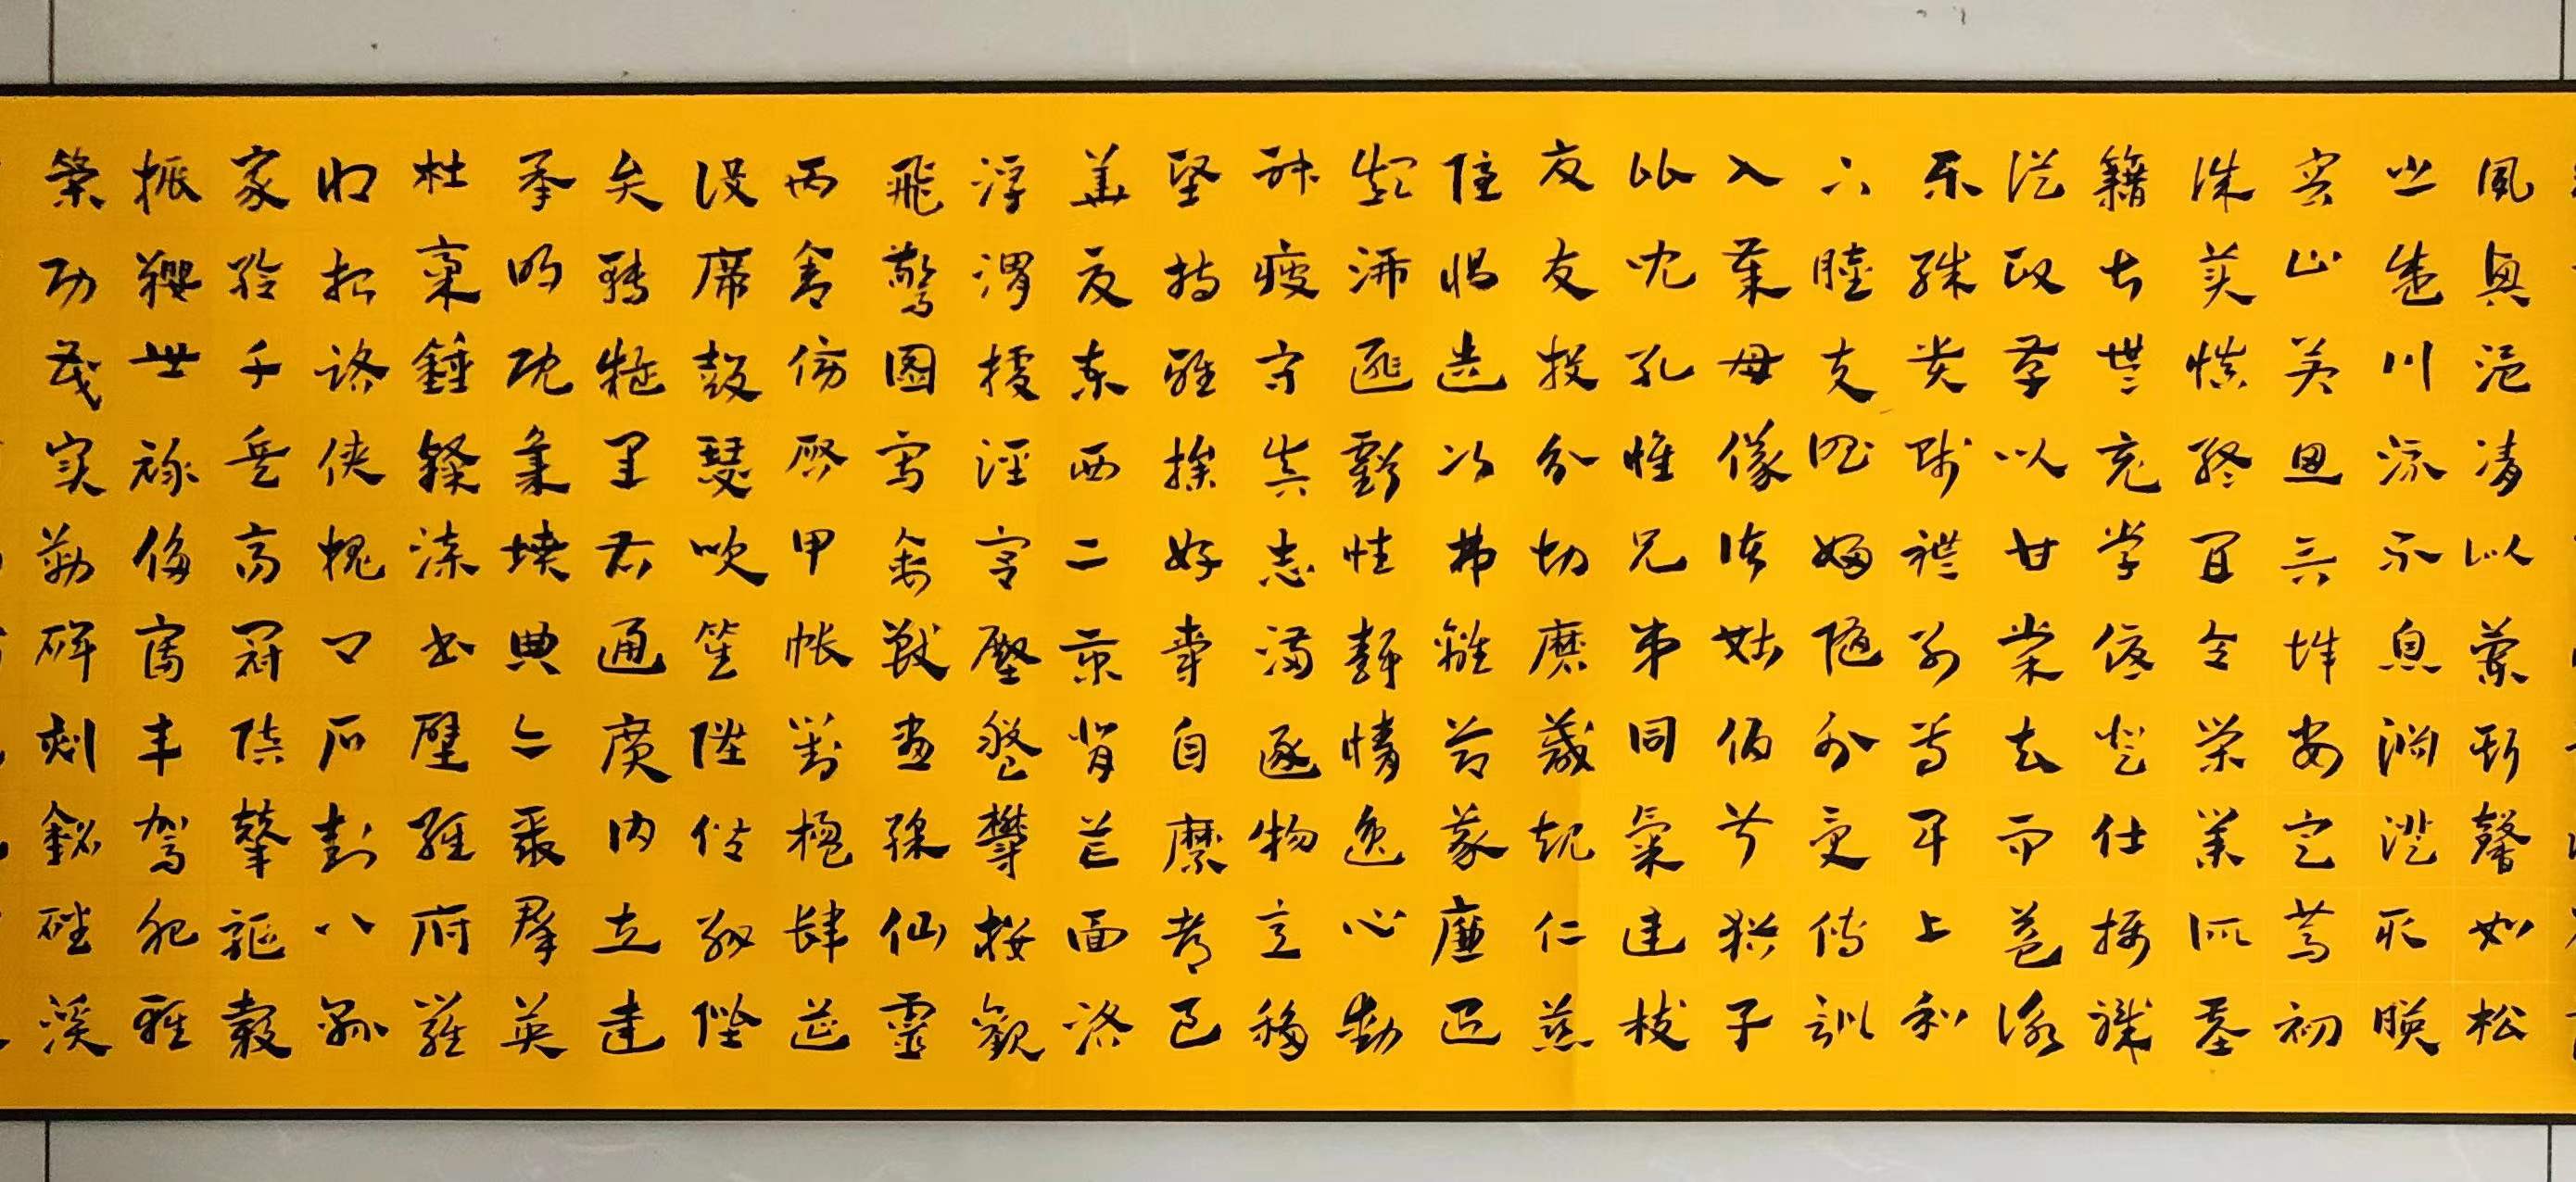 夙興溫凊似蘭斯馨如松
之盛川流不息淵澄取映
容止若思言辭安定篤初
誠美慎終宜令榮業所基
籍甚無竟學優登仕攝職
從政存以甘棠去而益詠
樂殊貴賤禮別尊卑上和
下睦夫唱婦隨外受傅訓
入奉母儀諸姑伯叔猶子
比兒孔懷兄弟同氣連枝
交友投分切磨箴規仁慈
隱惻造次弗離節義廉退
顛沛匪虧性靜情逸心動
神疲守真志滿逐物意移
堅持雅操好爵自縻都邑
華夏東西二京背邙面洛
浮渭據涇宮殿盤鬱樓觀
飛驚圖寫禽獸畫彩仙靈
丙舍傍啟甲帳對楹肆筵
設席鼓瑟吹笙陞階納陛
弁轉疑星右通廣內左達
承明既集墳典亦聚群英
杜稿鍾隸漆書壁經府羅
將相路俠槐卿戶封八縣
家給千兵高冠陪輦驅轂
振纓世祿侈富車駕肥輕
策功茂實勒碑刻銘磻溪